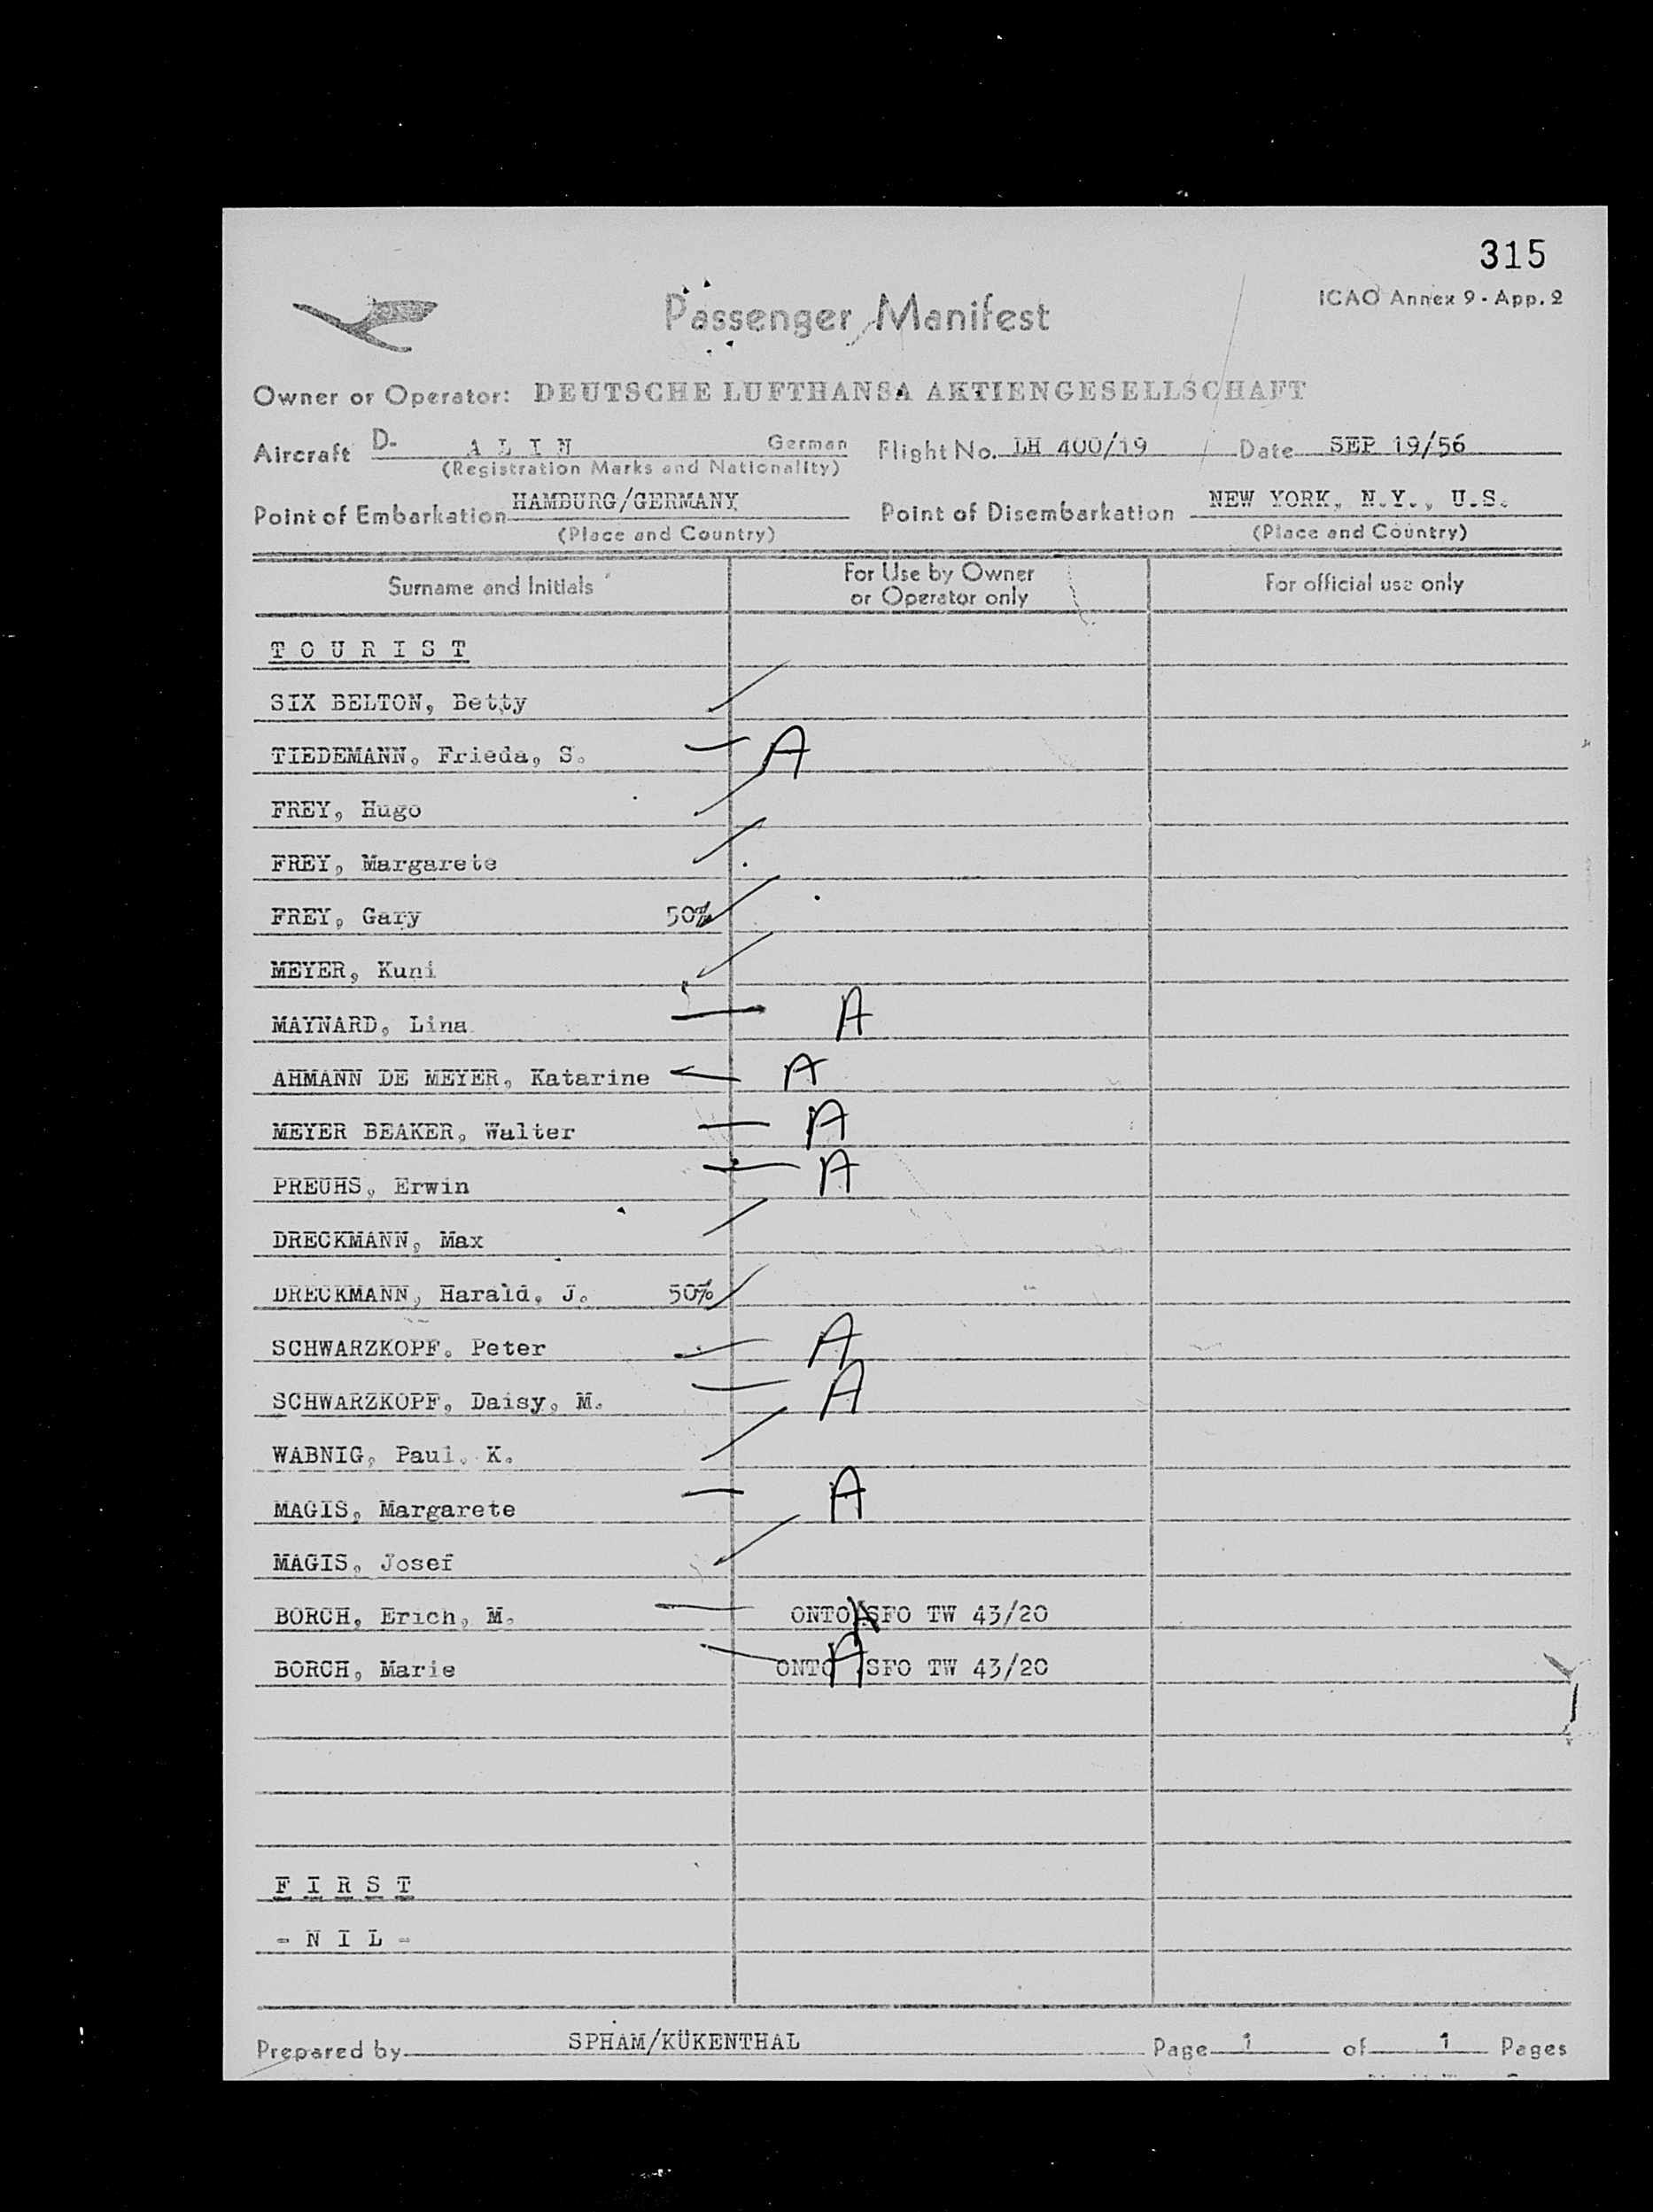 315
ICAO Annex 9 - App. 2
Passenger Manifest
Owner or Operator: DEUTSCHE LUFTHANSA AKTIENGESELLSCHAFT
Aircraft D- A L I N German Flight No. LH 400/19 Date SEP 19/56
(Registration Marks and Nationality)
Point of Embarkation HAMBURG/GERMANY Point of Disembarkation NEW YORK, N.Y., U.S.
(Place and Country) (Place and Country)
Surname and Initials For Use by Owner or Operator only For official use only
T O U R I S T
SIX BELTON, Betty
TIEDEMANN, Frieda, S. A
FREY, Hugo
FREY, Margarete
FREY, Gary 50%
MEYER, Kuni
MAYNARD, Lina A
AHMANN DE MEYER, Katarine A
MEYER BEAKER, Walter A
PREUHS, Erwin A
DRECKMANN, Max
DRECKMANN, Harald, J. 50%
SCHWARZKOPF, Peter A
SCHWARZKOPF, Daisy, M. A
WABNIG, Paul, K.
MAGIS, Margarete A
MAGIS, Josef
BORCH, Erich, M. ONTO A SFO TW 43/20
BORCH, Marie ONTO A SFO TW 43/20
F I R S T
- N I L -
Prepared by SPHAM/KÜKENTHAL Page 1 of 1 Pages